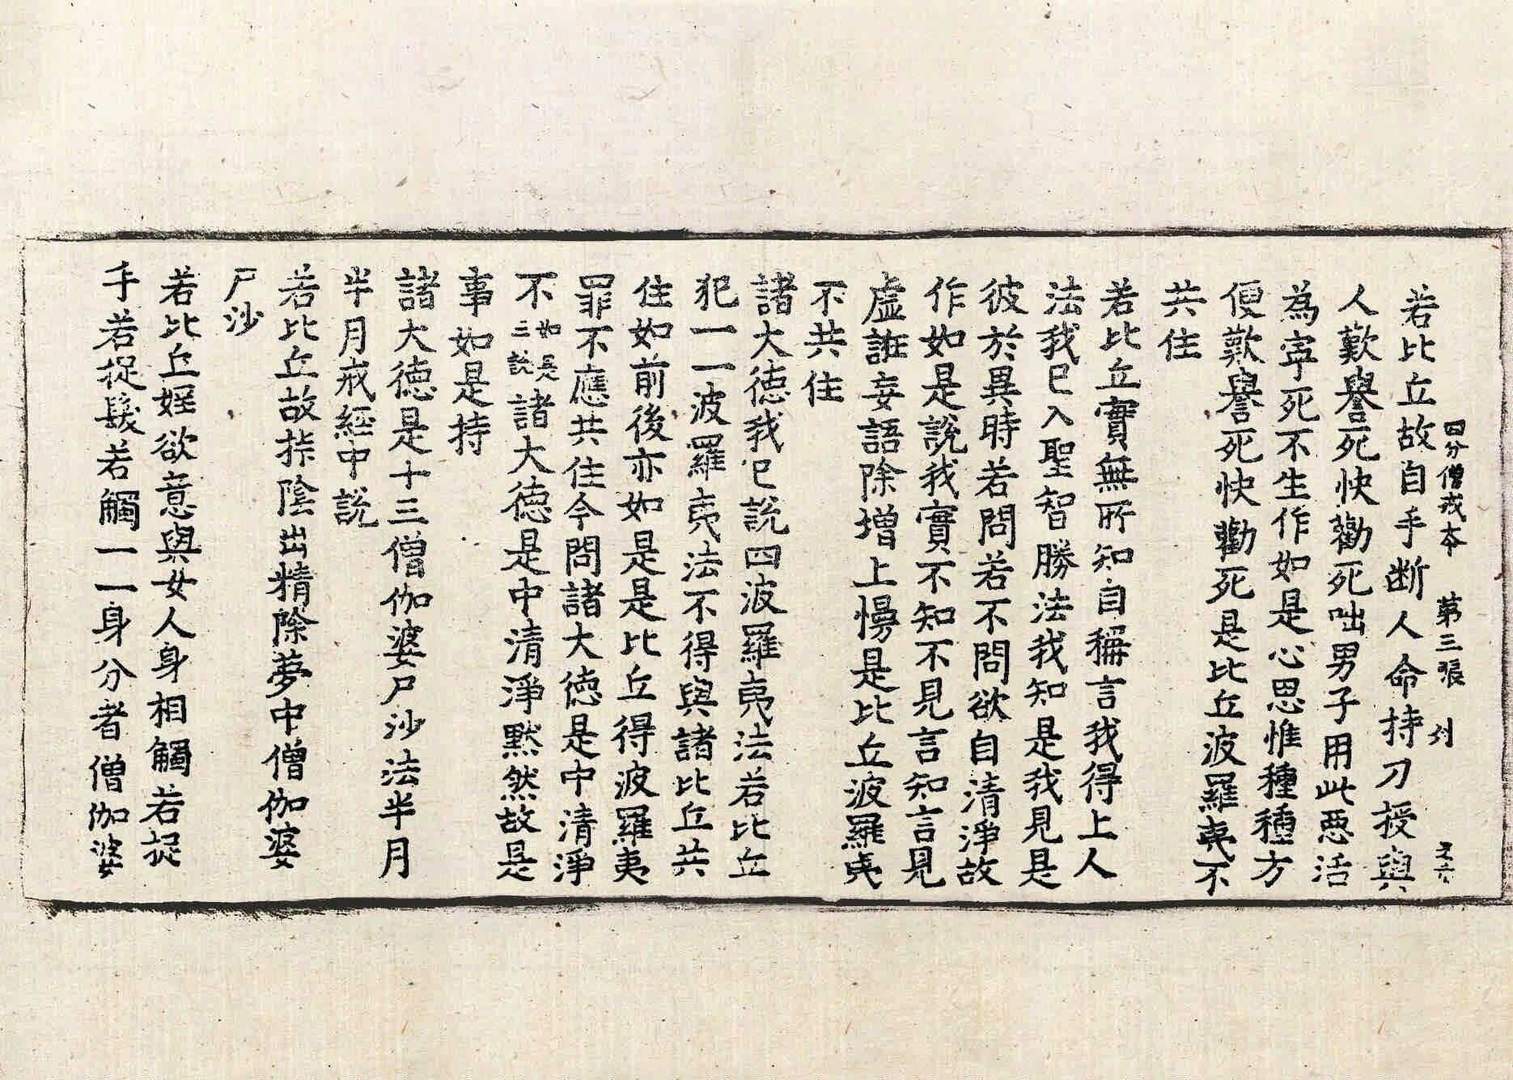 四分僧戒本 第三張 列
若比丘故自手断人命持刀授與
人歎譽死快勸死咄男子用此惡活
為寧死不生作如是心思惟種種方
便歎譽死快勸死是比丘波羅夷不
共住
若比丘實無所知自稱言我得上人
法我已入聖智勝法我知是我見是
彼於異時若問若不問欲自清淨故
作如是說我實不知不見言知言見
虛誑妄語除增上慢是比丘波羅夷
不共住
諸大德我已說四波羅夷法若比丘
犯一一波羅夷法不得與諸比丘共
住如前後亦如是是比丘得波羅夷
罪不應共住今問諸大德是中清淨
不如是三說諸大德是中清淨黙然故是
事如是持
諸大德是十三僧伽婆尸沙法半月
半月戒經中說
若比丘故𢪛陰出精除夢中僧伽婆
尸沙
若比丘婬欲意與女人身相觸若捉
手若捉髮若觸一一身分者僧伽婆